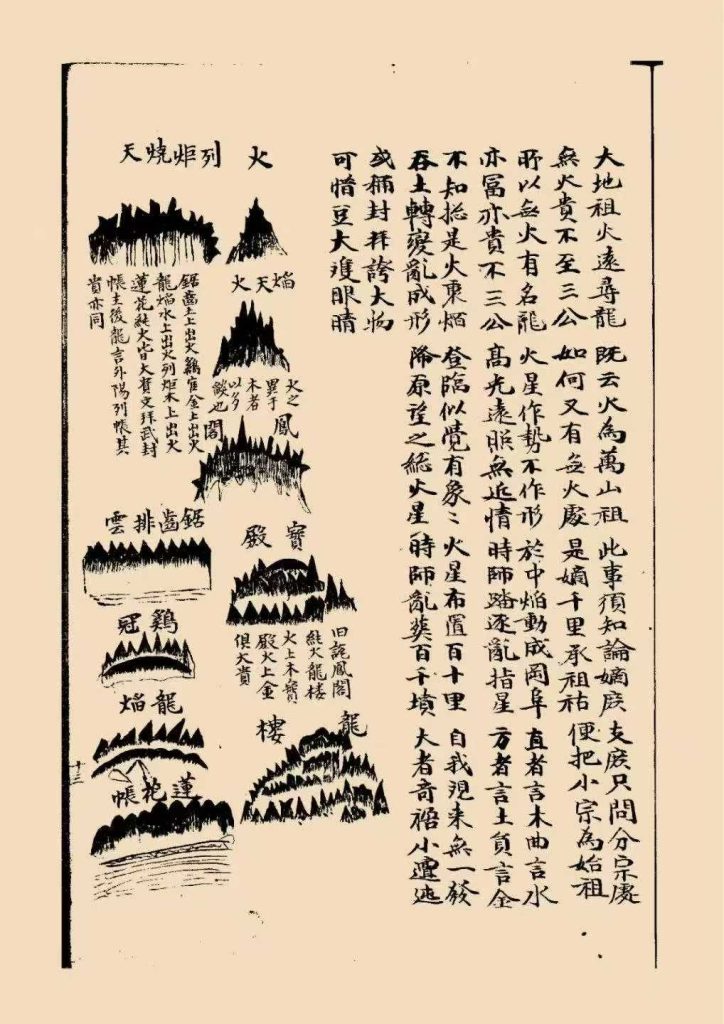 大地祖火遠尋龍 既云火為萬山祖 此事須知論嫡庶 支庶只問分宗處
無火貴不至三公 如何又有無火處 是嫡千里承祖祜 便把小宗為始祖
所以無火有名龍 火星作勢不作形 於中焰動成岡阜 直者言木曲言水
亦富亦貴不三公 高光遠照無近情 時師踏逐亂指星 方者言土負言金
不知捴是火 登臨似覺有象〻 火星布置百十里 自我現來無一發
吞土轉變亂成形 降原望之總火星 時師亂葬百千墳 大者奇禍小遭迍
或稱封拜誇大物
可惜豆大雙眼睛
火
焰天火
火之
異于
木者
以多
燄也
鳳閣
寶殿
旧說鳳閣
純火龍樓
火上木寶
殿火上金
俱大貴
龍樓
列炬燒天
鋸齒土上出火鷄冠金上出火
龍焰水上出火列炬木上出火
蓮花純火皆大貴文拜武封
帳主後龍言外陽列帳其
貴亦同
鋸齒排雲
鷄冠
龍焰
蓮花帳
十三